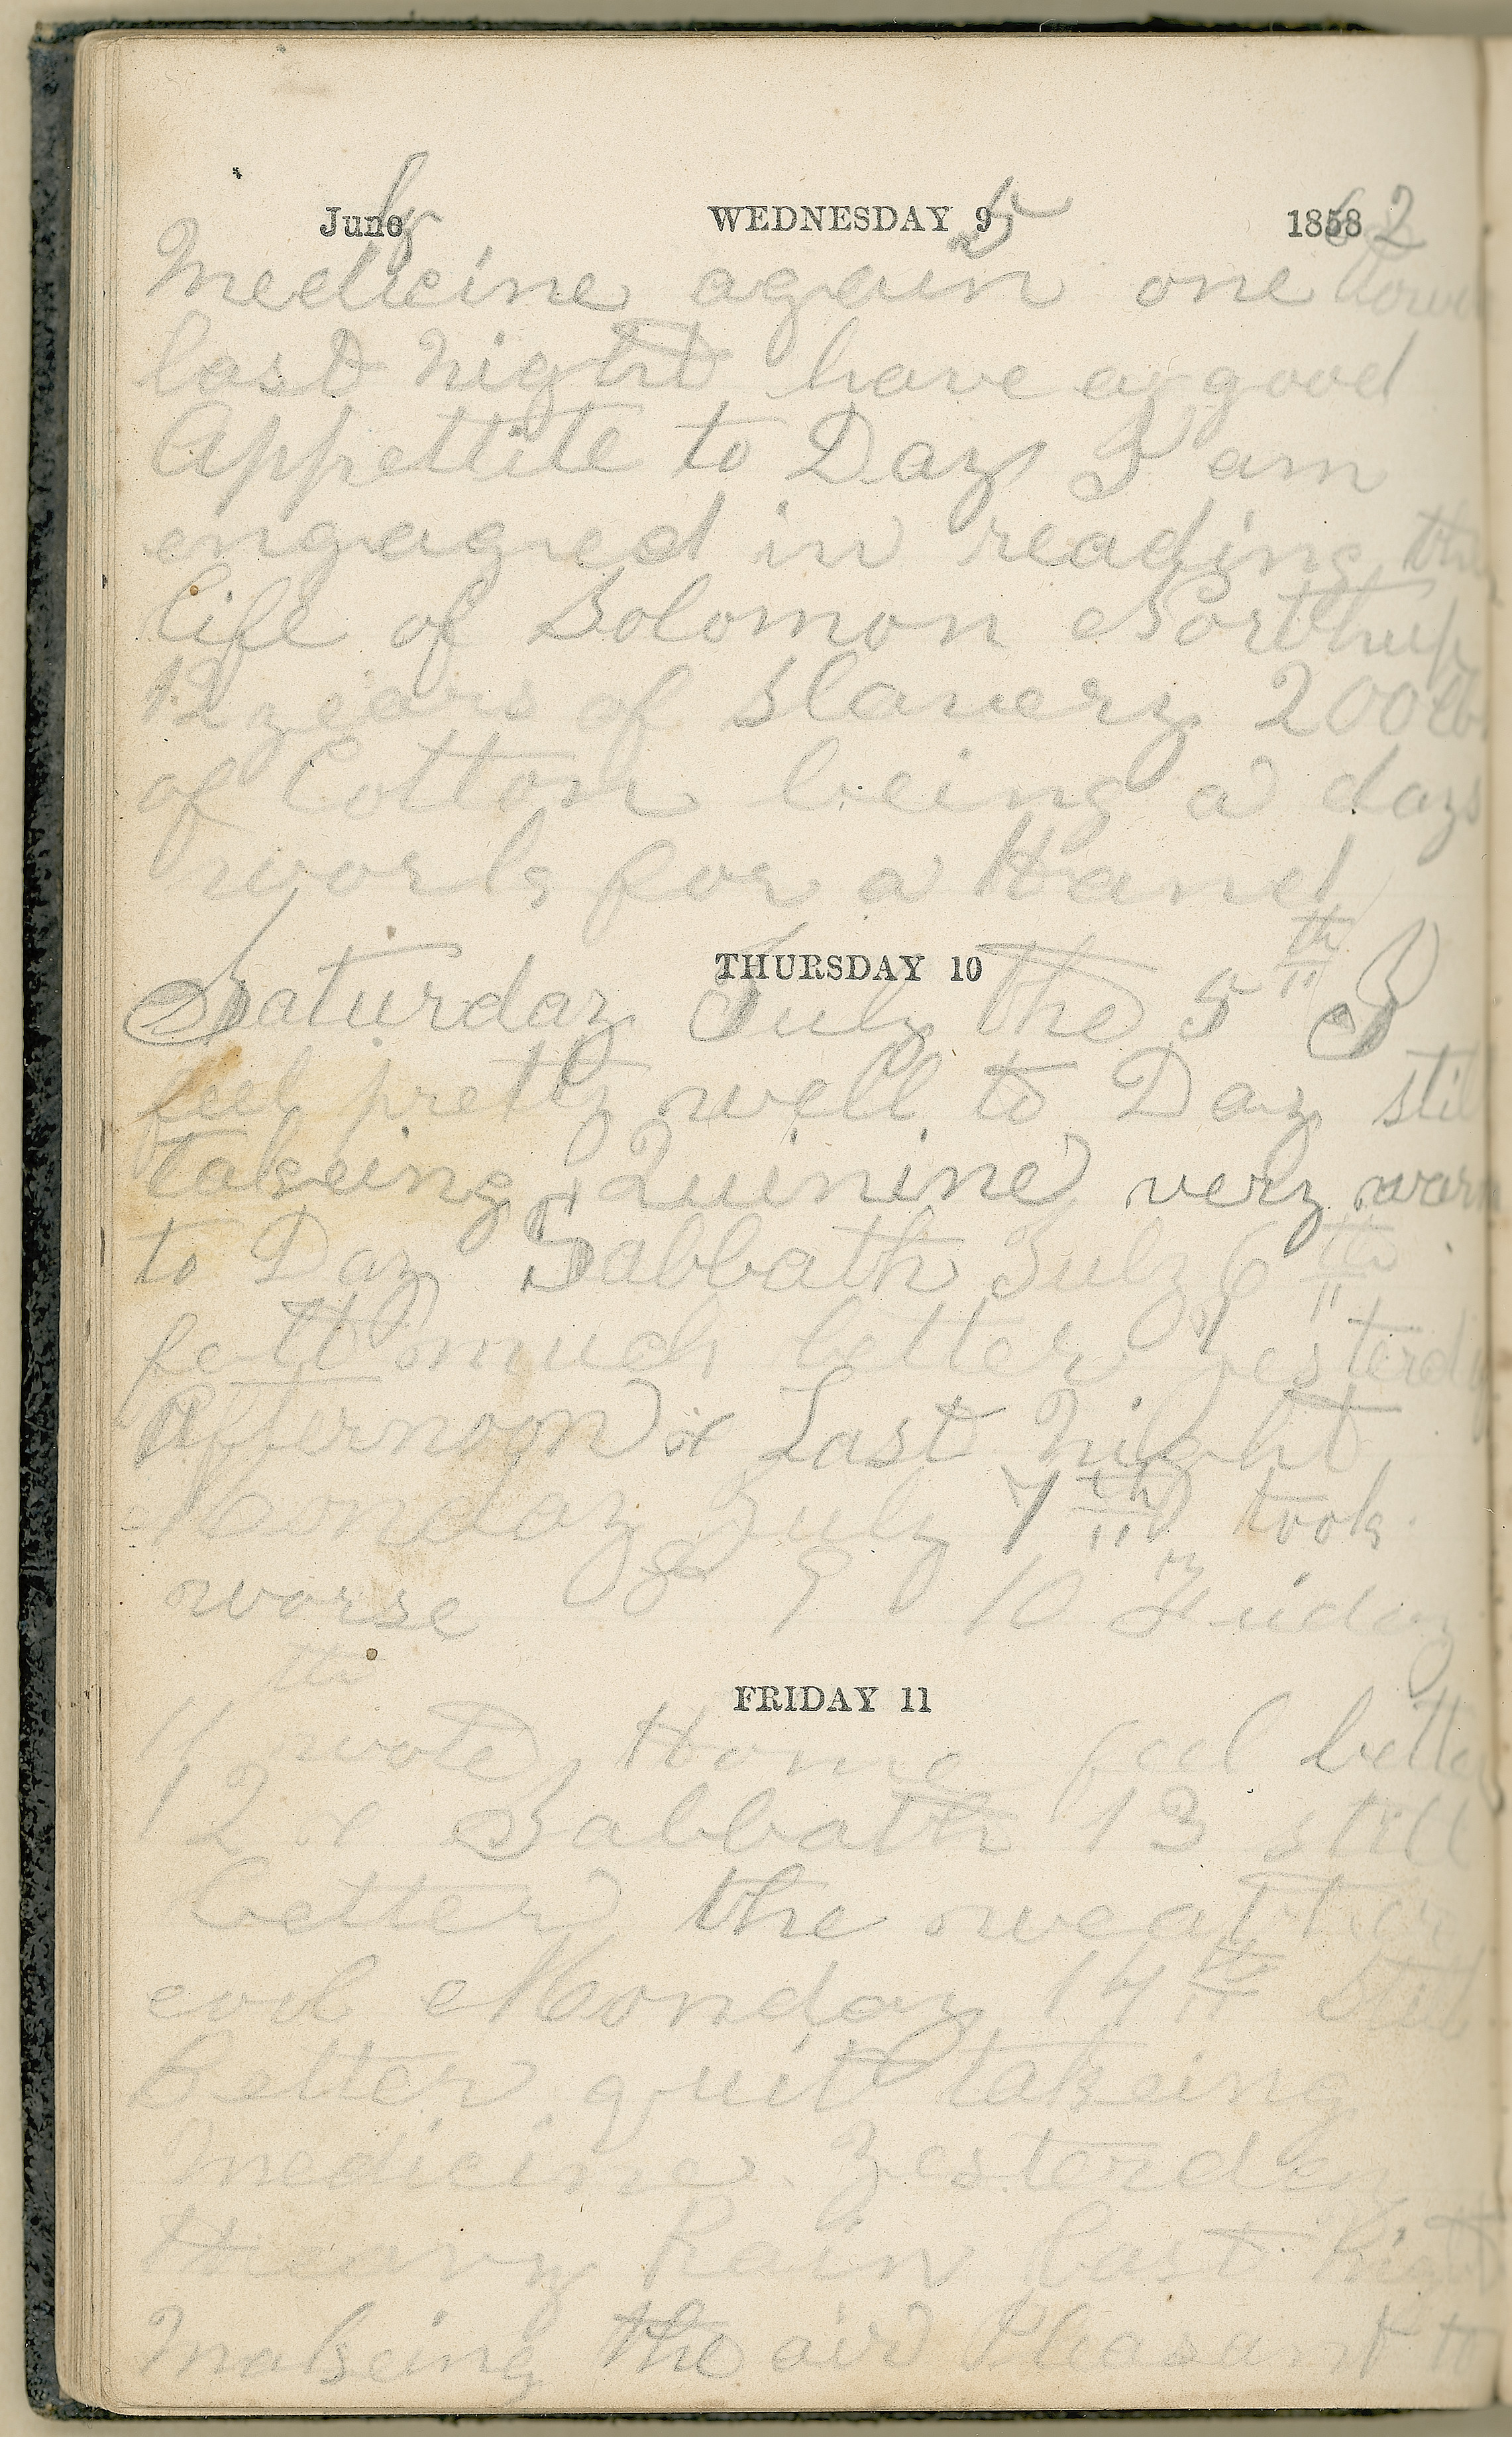 June WEDNESDAY 9 5 1858 62
Medicine again one
last night have a good
Appettite to Day I am
engaged in reading the
life of Solomon Northup
12 years of Slavery 200 lb
of Cotton being a days
work for a Hand
THURSDAY 10
Saturday July the 5th I
feel pretty well to Day stil
takeing Quinine very warm
to Day Sabbath July 6th
fett much better yesterday
Afternoon & Last night
Monday July 7th took
worse 8 9 10 Friday
th
FRIDAY 11
11 wote Home feel better
12 & Sabbath 13 still
better the weather
cool Monday 14th Still
Better quit takeing
Medicine Yesterday
Heavy Rain last night
Makeing the air Pleasant to